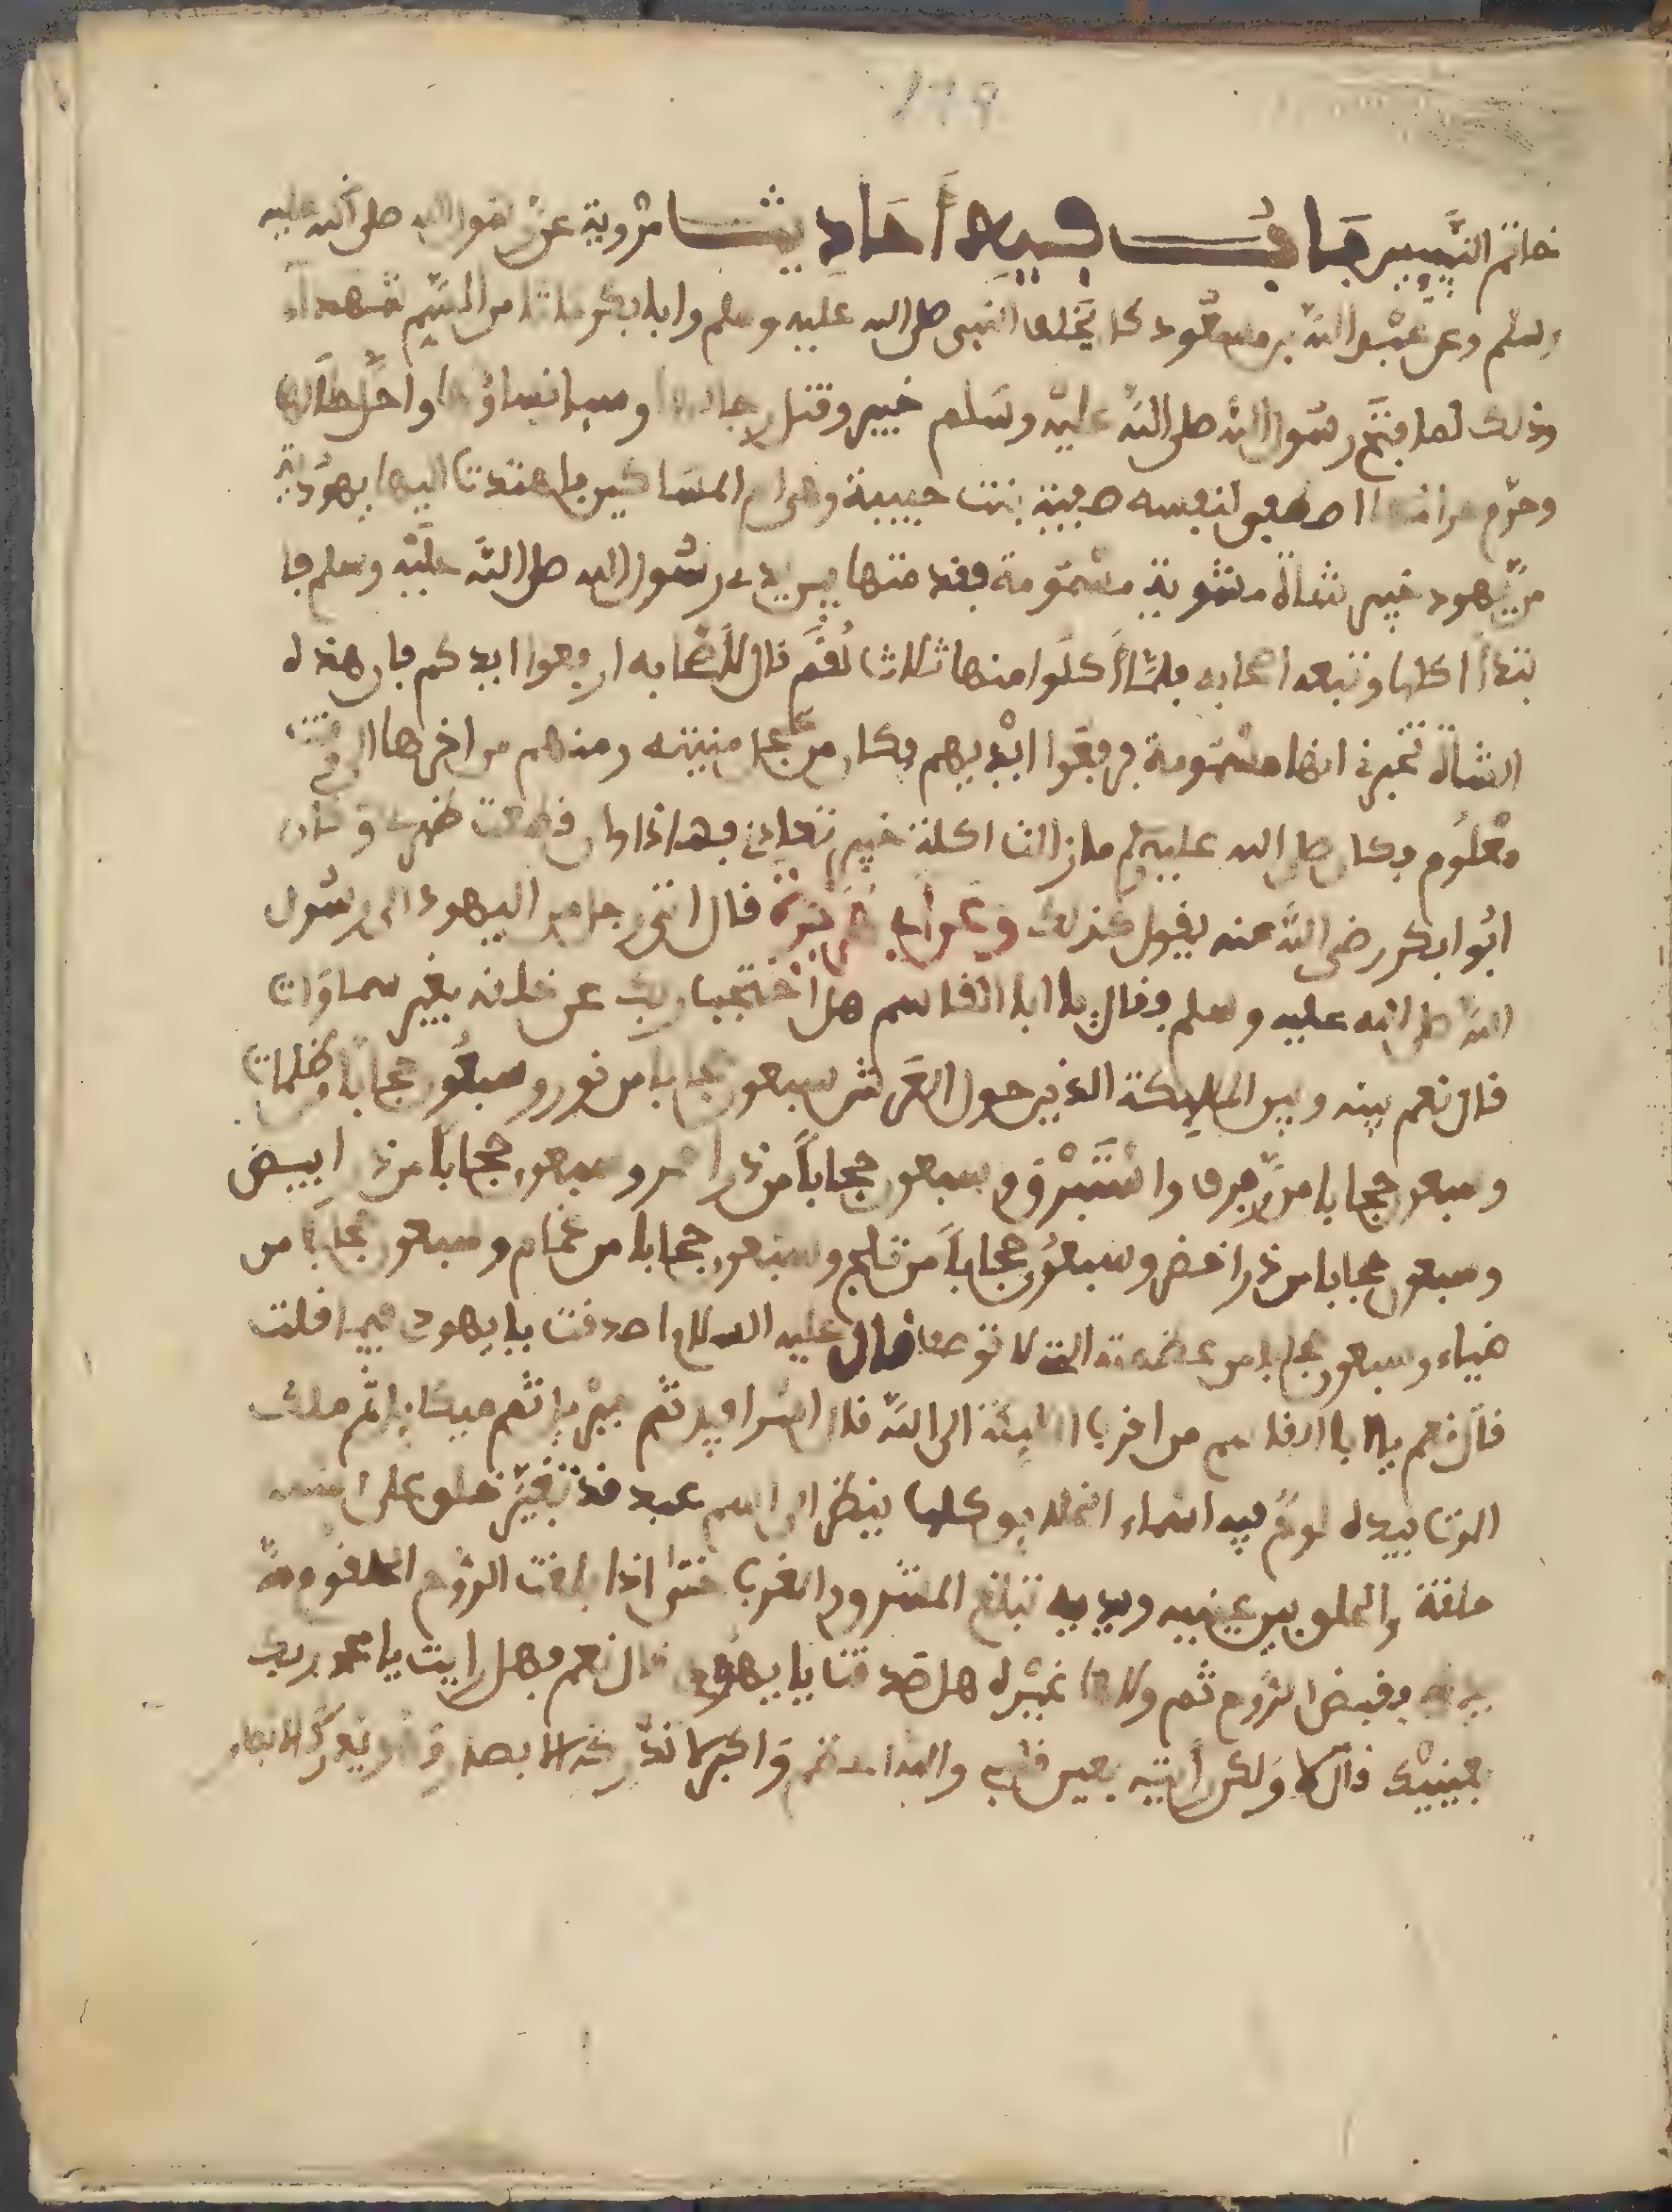 خاتم النبيين باب فيه أحاديثا مروية عن رسول الله صلى الله عليه
وسلم وعن عبد الله بن مسعود كان يحلف النبي صلى الله عليه وسلم وابا بكر ماتا من السم شهداء
وذلك لما فتح رسول الله صلى الله عليه وسلم خيبر وقتل رجالها وسبا نساؤها واحل حلالها
وحرم حرامها اصطفى لنفسه صفية بنت حبيبة وهي ام المساكين فاهتدت اليها يهودية
من يهود خيبر شاة مشوية مسمومة فقدمتها بين يدي رسول الله صلى الله عليه وسلم فا
بتدأ اكلها وتبعه اصحابه فلما أكلوا منها ثلاث لقم قال لأصحابه ارفعوا ايدكم فان هذه
الشاة تخبرني انها مسمومة فرفعوا ايديهم فكان من عجل منيته ومنهم من اخرها الى وقت
معلوم فكان صلى الله عليه وسلم ما زالت اكلة خيبر تعادني فهذا اوان قطعت ظهري وكان
ابوا بكر رضي الله عنه يقول كذلك وعن ابي هريرة قال اتى رجل من اليهود الى رسول
الله صلى الله عليه وسلم فقال يا ابا القاسم هل احتجب ربك عن خلقه بغير سماوات
قال نعم بينه وبين الملايكة الذين حول العرش سبعون حجابا من نور وسبعون حجابا وظلمات
وسبعون حجابا من رفرف واستبرق وسبعون حجابا من در احمر وسبعون حجابا من در ابيض
وسبعون حجابا من در اخضر وسبعون حجابا من ثلج وسبعون حجابا من غمام وسبعون حجابا من
ضياء وسبعون حجابا من عظمته التي لا توصف قال عليه السلام اصدقت يا يهودي فيما قلت
قال نعم يا ابا القاسم من اقرب الملايكة الى الله قال اسرافيل ثم جبريل ثم ميكايل ثم ملك
الموت بيده لوح فيه اسماء الخلايق كلها ينظر الى اسم عبد قد تغير خلق على اسمه
حلقة والخلق بين عينيه ويديه تبلغ المشرق والمغرب حتى اذا بلغت الروح الحلقوم مد
يده فقبض الروح ثم ولاها غيره هل صدقت يا يهودي قال نعم فهل رايت يا محمد ربك
بعينيك قال لا ولكن رايته بعين قلبي والله اعظم واكبر لا تدركه الابصار وهو يدرك الابصار